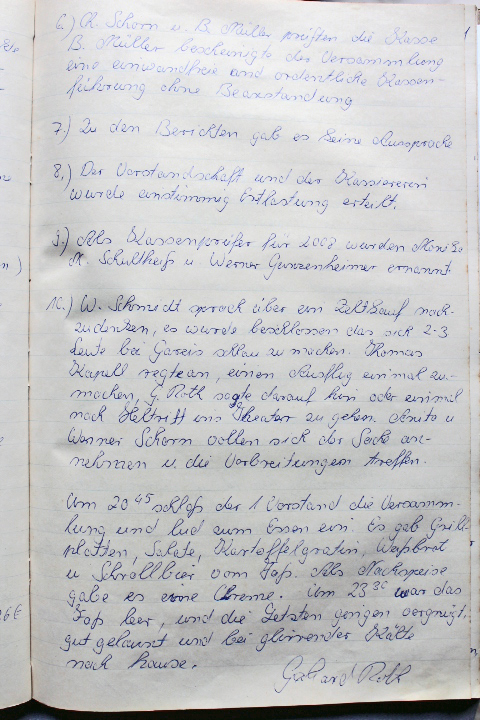 6.) A. Schorn u. B. Müller prüften die Kasse
B. Müller bescheinigte der Versammlung
eine einwandfreie und ordentliche Kassen-
führung ohne Beanstandung
7.) Zu den Berichten gab es keine Aussprache
8.) Der Vorstandschaft und der Kassiererin
wurde einstimmig Entlastung erteilt.
9.) Als Kassenprüfer für 2008 wurden
A. Schultheiß u Werner Gunzenheimer ernannt
10.) W. Schmidt sprach über ein Zeltkauf nach-
zudenken, es wurde beschlossen das sich 2-3
Leute bei Gareis schlau zu machen. Thomas
Kapell regte an, einen Ausflug einmal zu
machen, G. Roth sagte darauf hin oder einmal
nach Heltritt ins Theater zu gehen. Anita u
Werner Schorn wollen sich der Sache an-
nehmen u. die Vorbreitungen treffen.
Um 20 45 schloß der 1 Vorstand die Versamm-
lung und lud zum Essen ein. Es gab Grill-
platten, Salate, Kartoffelgratin, Weißbrot
u Schrollbier vom Faß. Als Nachspeise
gabe es eine Chreme. Um 23 30 war das
Faß leer, und die Letzten gingen vergnügt,
gut gelaunt und bei glirrender Kälte
nach hause.
Gerhard Roth